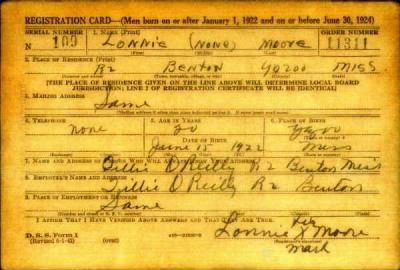 REGISTRATION CARD—(Men born on or after January 1, 1922 and on or before June 30, 1924)
SERIAL NUMBER 1. NAME (Print) ORDER NUMBER
N 109 LONNIE (NONE) MOORE 11311
2. PLACE OF RESIDENCE (Print)
R2 BENTON YAZOO MISS
[THE PLACE OF RESIDENCE GIVEN ON THE LINE ABOVE WILL DETERMINE LOCAL BOARD
JURISDICTION; LINE 2 OF REGISTRATION CERTIFICATE WILL BE IDENTICAL]
3. MAILING ADDRESS
Same
4. TELEPHONE 5. AGE IN YEARS 6. PLACE OF BIRTH
none 20 Yazoo
DATE OF BIRTH
June 15 1922 Miss
7. NAME AND ADDRESS OF PERSON WHO WILL ALWAYS KNOW YOUR ADDRESS
Tillie O Reilly R2 Benton Miss
8. EMPLOYER'S NAME AND ADDRESS
Tillie O Reilly R2 Benton
9. PLACE OF EMPLOYMENT OR BUSINESS
Same
I AFFIRM THAT I HAVE VERIFIED ABOVE ANSWERS AND THAT THEY ARE TRUE.
D. S. S. Form 1 (over) Lonnie X Moore
his
mark